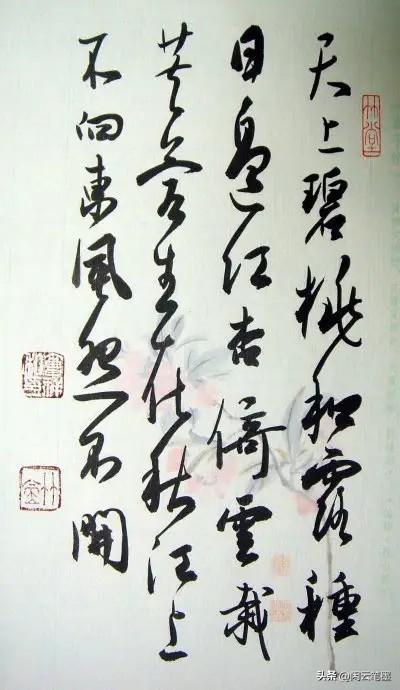 天上碧桃和露種
日邊紅杏倚雲栽
芙蓉生在秋江上
不向東風怨不開
头条 @闲云笔墨